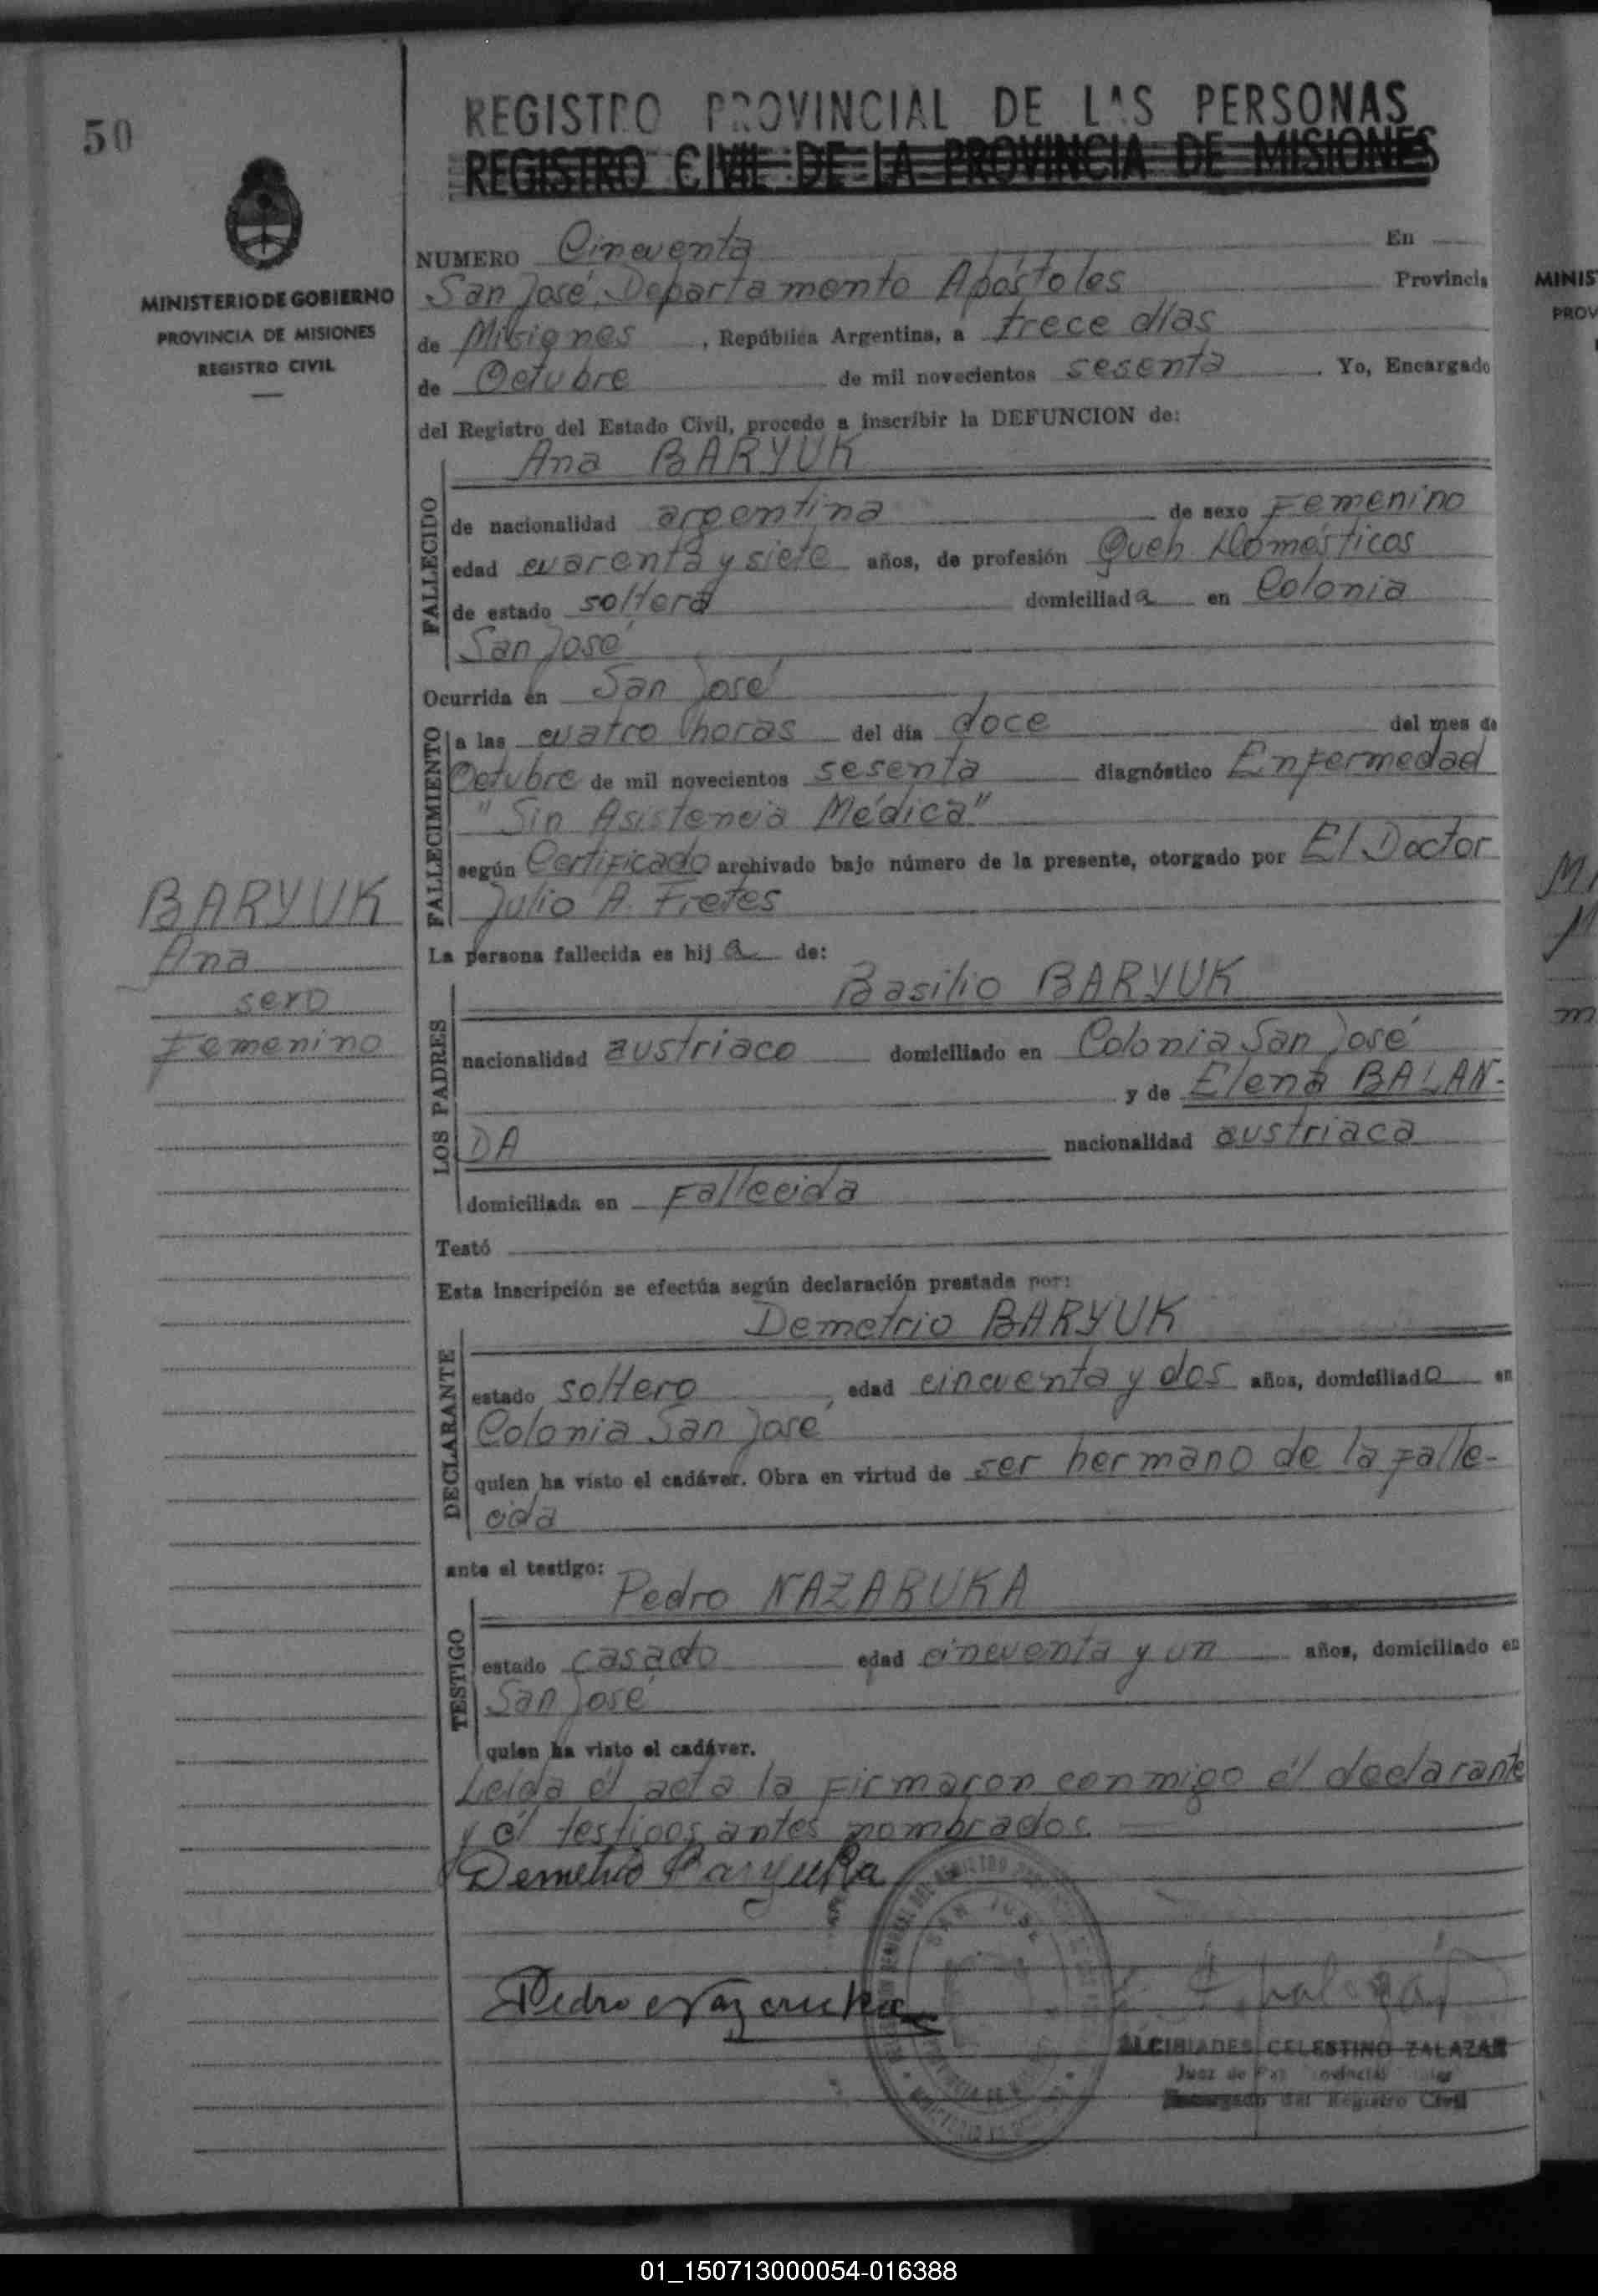 50
REGISTRO PROVINCIAL DE LAS PERSONAS
REGISTRO CIVIL DE LA PROVINCIA DE MISIONES
MINISTERIO DE GOBIERNO
PROVINCIA DE MISIONES
REGISTRO CIVIL
NUMERO Cincuenta En
San José, Departamento Apóstoles Provincia
de Misiones, República Argentina, a trece días
de Octubre de mil novecientos sesenta. Yo, Encargado
del Registro del Estado Civil, procedo a inscribir la DEFUNCION de:
Ana BARYUK
FALLECIDO
de nacionalidad argentina de sexo Femenino
edad cuarenta y siete años, de profesión Queh. Domésticos
de estado soltera domiciliada en Colonia
San José
Ocurrida en San José
FALLECIMIENTO
a las cuatro horas del día doce del mes de
Octubre de mil novecientos sesenta diagnóstico Enfermedad
"Sin Asistencia Médica"
según Certificado archivado bajo número de la presente, otorgado por El Doctor
Julio A. Fretes
BARYUK
Ana
sexo
Femenino
La persona fallecida es hija de:
LOS PADRES
Basilio BARYUK
nacionalidad austriaco domiciliado en Colonia San José
y de Elena BALAN-
DA nacionalidad austriaca
domiciliada en Fallecida
Testó
Esta inscripción se efectúa según declaración prestada por:
DECLARANTE
Demetrio BARYUK
estado soltero, edad cincuenta y dos años, domiciliado en
Colonia San José
quien ha visto el cadáver. Obra en virtud de ser hermano de la falle-
cida
ante el testigo:
TESTIGO
Pedro NAZARUKA
estado casado edad cincuenta y un años, domiciliado en
San José
quien ha visto el cadáver.
Leida el acta la firmaron conmigo él declarante
y él testigos antes nombrados.
Demetrio Baryuka
SAN JOSE
Pedro Nazaruka
ALCIBIADES CELESTINO ZALAZAR
Juez de Paz
Encargado del Registro Civil
MINIS
PROV
01_150713000054-016388